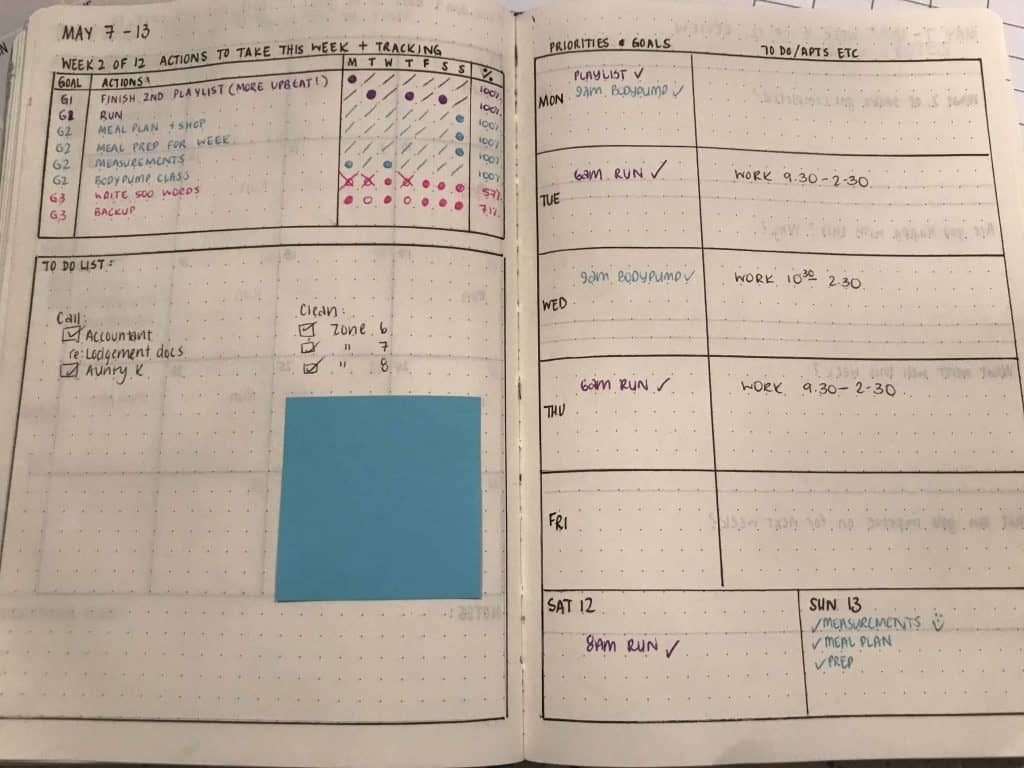 MAY 7-13
WEEK 2 OF 12 ACTIONS TO TAKE THIS WEEK + TRACKING
GOAL ACTIONS: M T W T F S S %
G1 FINISH 2ND PLAYLIST (MORE UPBEAT!) 100%
G2 RUN 100%
G2 MEAL PLAN + SHOP 100%
G2 MEAL PREP FOR WEEK 100%
G2 MEASUREMENTS 100%
G2 BODYPUMP CLASS 100%
G3 WRITE 500 WORDS 57%
G3 BACKUP 71%
TO DO LIST:
Call:
Accountant
re: Lodgement docs
K
Clean:
Zone 6
" 7
" 8
PRIORITIES & GOALS TO DO/APTS ETC
MON
PLAYLIST ✓
9am BODYPUMP ✓
TUE
6am RUN ✓
WORK 9.30-2-30
WED
9am BODYPUMP ✓
WORK 10 30 2.30
THU
6am RUN ✓
WORK 9.30-2-30
FRI
SAT 12
8AM RUN ✓
SUN 13
✓ MEASUREMENTS
✓ MEAL PLAN
✓ PREP